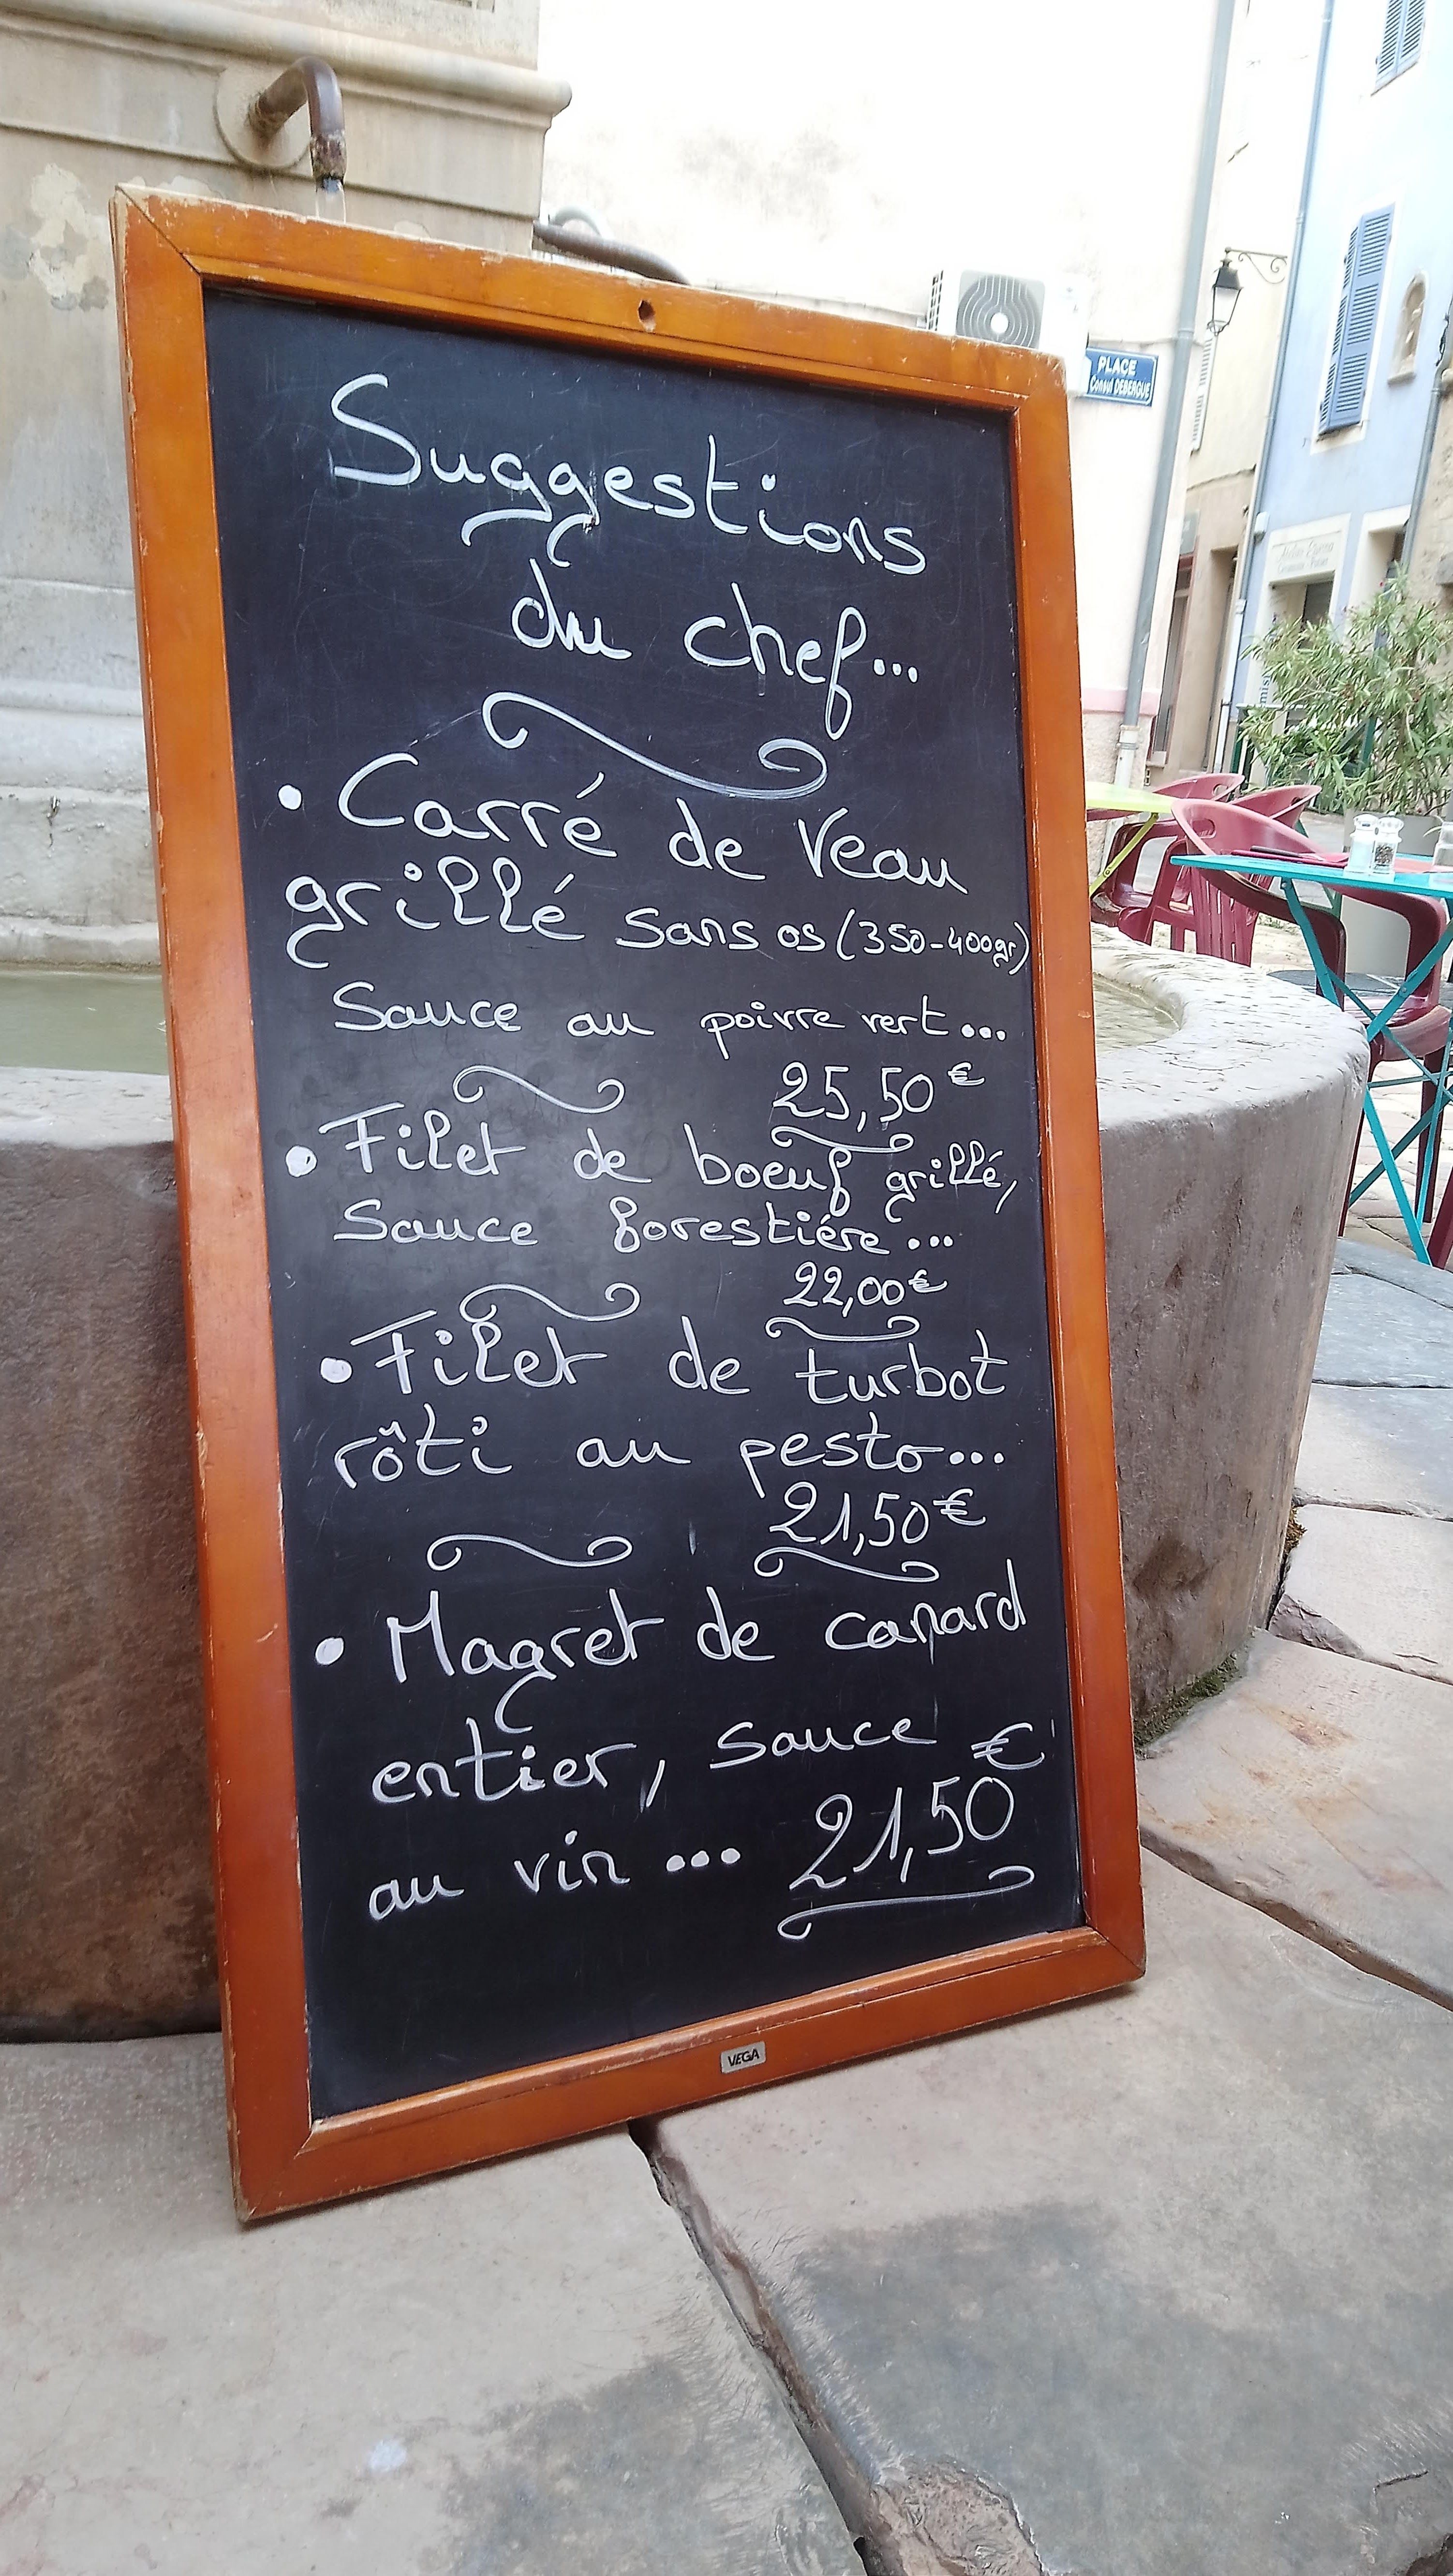 Suggestions
du chef...
• Carré de Veau
grillé sans os (350-400gr)
Sauce au poivre vert...
25,50 €
• Filet de boeuf grillé,
Sauce forestiére...
22,00 €
• Filet de turbot
rôti au pesto...
21,50 €
• Magret de canard
entier, sauce
au vin... 21,50 €
VEGA
PLACE
Consul DEBERGUE